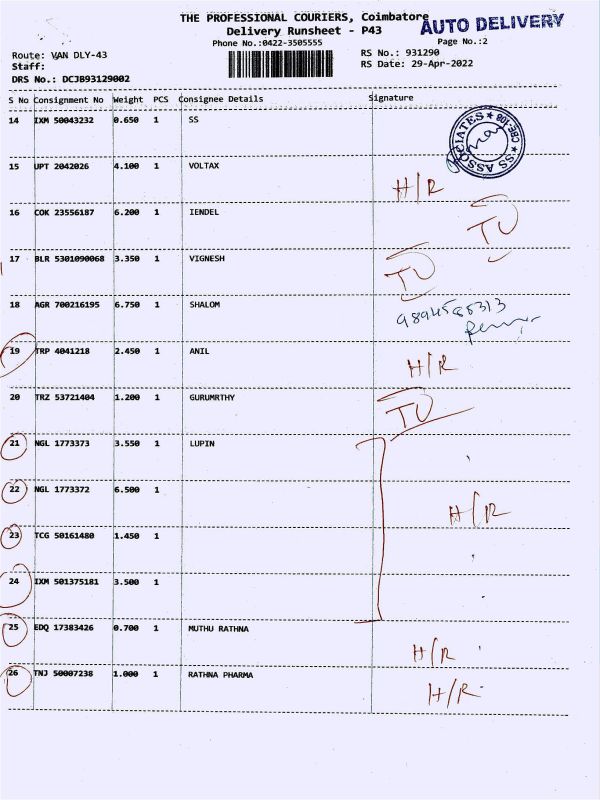 THE PROFESSIONAL COURIERS, Coimbatore
AUTO DELIVERY
Delivery Runsheet - P43
Phone No.:0422-3505555
Page No.:2
Route: VAN DLY-43
RS No.: 931290
Staff:
RS Date: 29-Apr-2022
DRS No.: DCJB93129002
S No Consignment No Weight PCS Consignee Details Signature
14 IXM 50043232 0.650 1 SS
SS ASSOCIATES ★ CBE-108 ★
15 UPT 2042026 4.100 1 VOLTAX H/R
16 COK 23556187 6.200 1 IENDEL TU
17 BLR 5301090068 3.350 1 VIGNESH TU
18 AGR 700216195 6.750 1 SHALOM
19 TRP 4041218 2.450 1 ANIL H/R
20 TRZ 53721404 1.200 1 GURUMRTHY TU
21 NGL 1773373 3.550 1 LUPIN
22 NGL 1773372 6.500 1 H/R
23 TCG 50161480 1.450 1
24 IXM 501375181 3.500 1
25 EDQ 17383426 0.700 1 MUTHU RATHNA H/R
26 TNJ 50007238 1.000 1 RATHNA PHARMA H/R